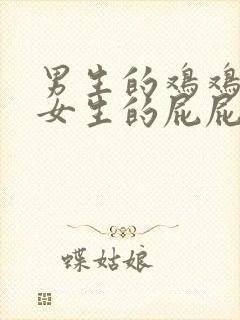 男生的鸡鸡
女生的屁屁
蝶姑娘